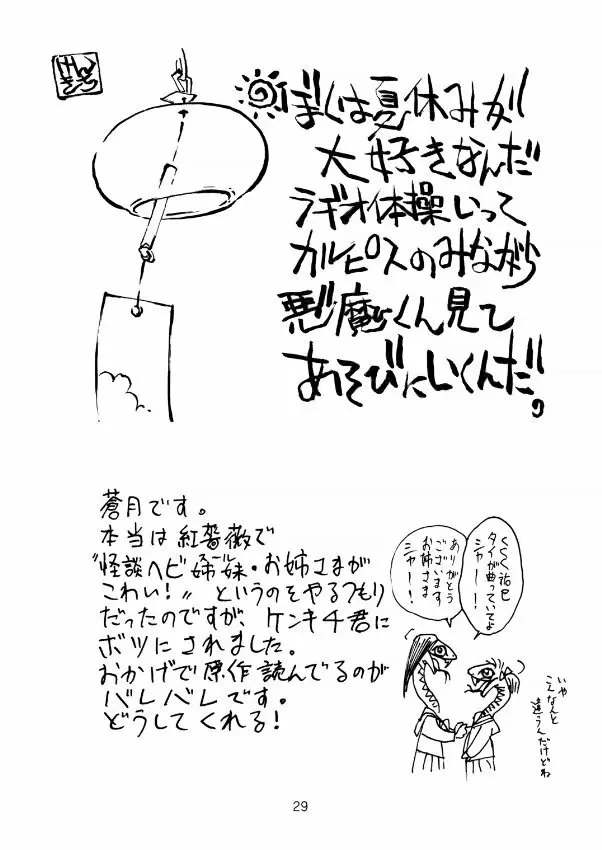 ぼくは夏休みが
大好きなんだ
ラヂオ体操いって
カルピスのみながら
悪魔くん見て
あそびにいくんだ。
蒼月です。
本当は紅薔薇で
"怪談ヘビ姉妹・お姉さまが
こわい!"というのをやるつもり
だったのですが、ケンキチ君に
ボツにされました。
おかげで原作読んでるのが
バレバレです。
どうしてくれる!
くくく祐巳
タイが曲っていてよ
シャー!!
ありがとう
ございます
お姉さま
シャー!!
いや
こんなんと
違うんだけどね
29